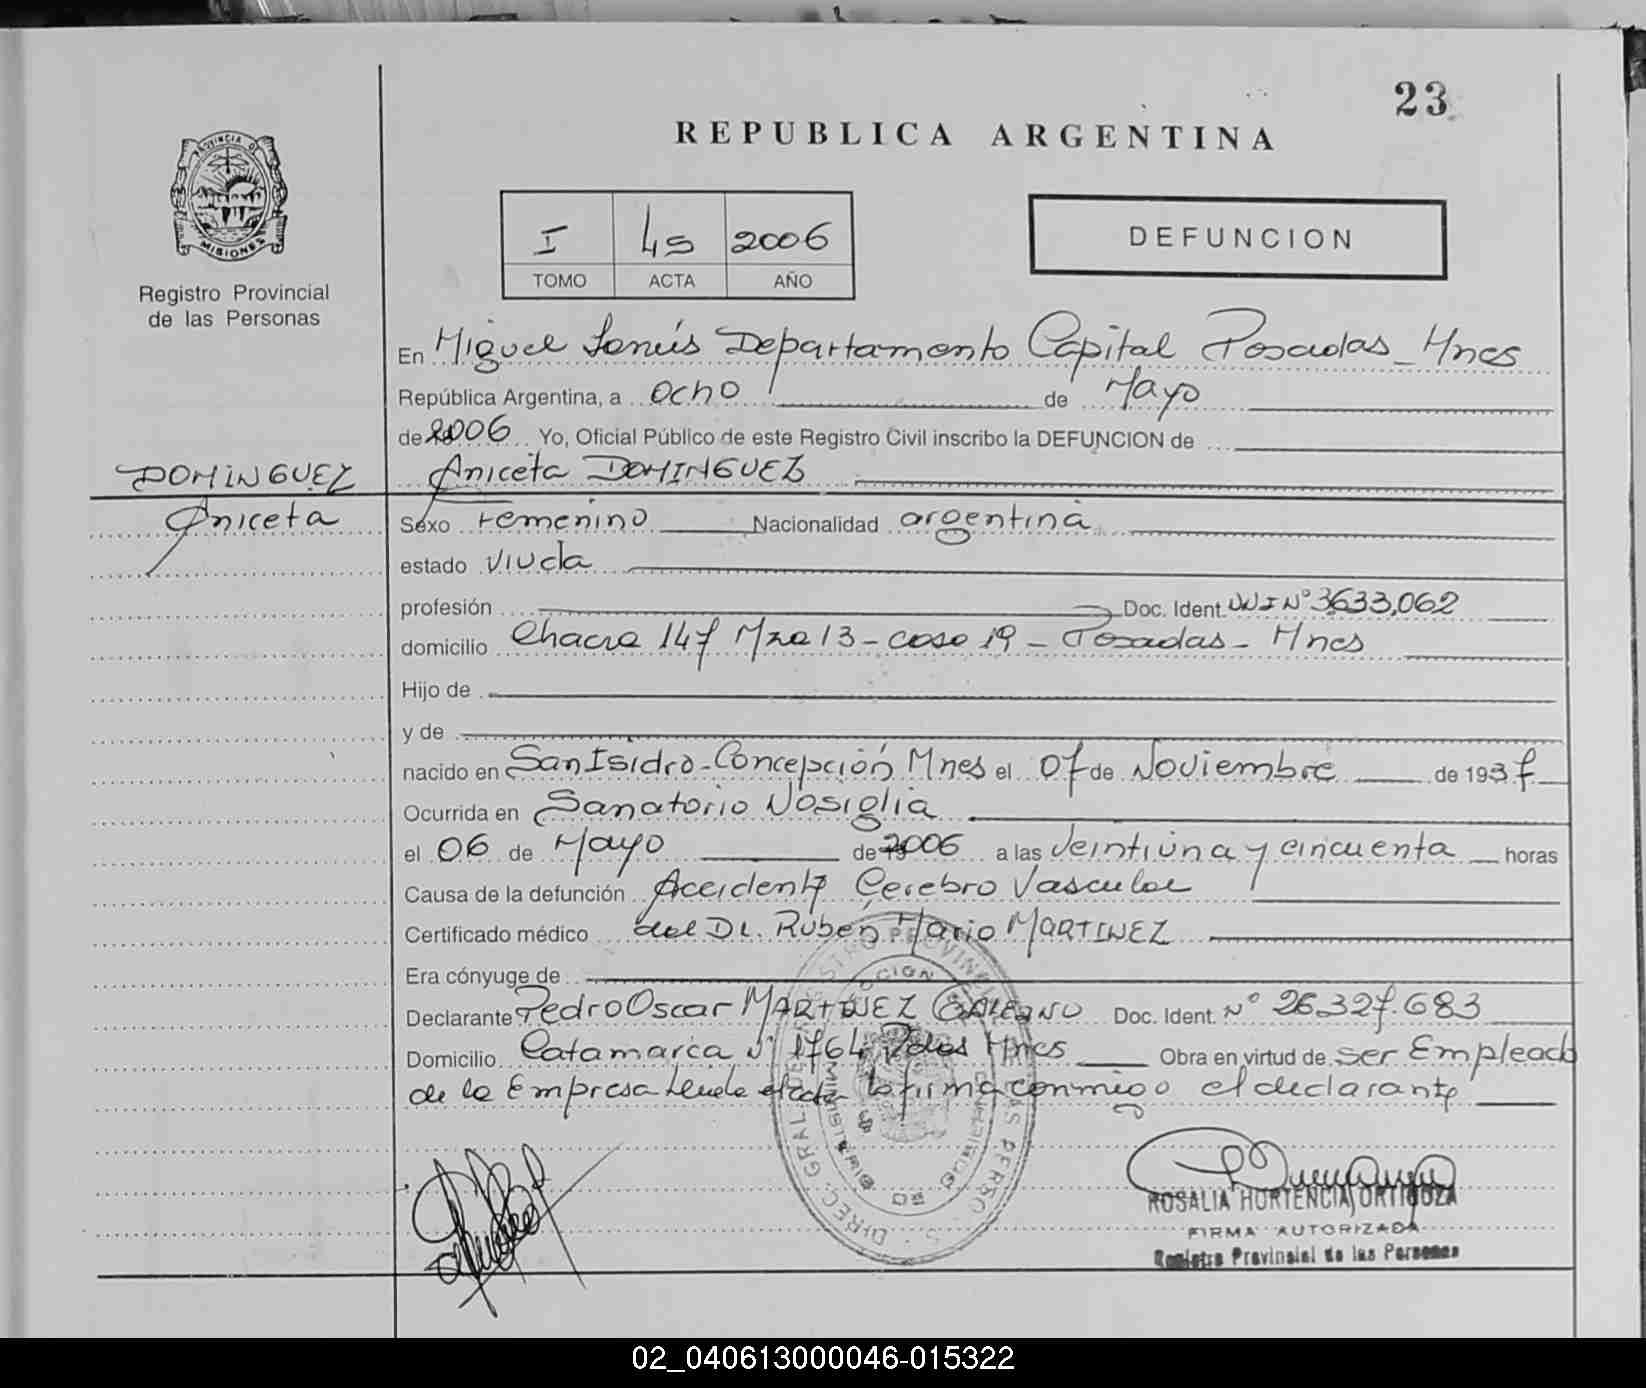 23
REPUBLICA ARGENTINA
PROVINCIA DE
MISIONES
Registro Provincial
de las Personas
I 45 2006
TOMO ACTA AÑO
DEFUNCION
En Miguel Lanús Departamento Capital Posadas - Mnes
República Argentina, a ocho de Mayo
de 2006 Yo, Oficial Público de este Registro Civil inscribo la DEFUNCION de
DOMINGUEZ Aniceta DOMINGUEZ
Aniceta Sexo Femenino Nacionalidad argentina
estado viuda
profesión Doc. Ident. DNI Nº 3633,062
domicilio Chacra 147 Mza 13 - casa 19 - Posadas - Mnes
Hijo de
y de
nacido en San Isidro - Concepción Mnes el 07 de Noviembre de 1937
Ocurrida en Sanatorio Nosiglia
el 06 de Mayo de 2006 a las veintiuna y cincuenta horas
Causa de la defunción Accidente Cerebro Vascular
Certificado médico del Dr. Ruben Mario MARTINEZ
Era cónyuge de
Declarante Pedro Oscar MARTINEZ GALEANO Doc. Ident. Nº 26.327.683
Domicilio Catamarca Nº 1764 Pdas Mnes Obra en virtud de ser Empleado
de la Empresa la firma conmigo el declarante
ROSALIA HORTENCIA ORTIGOZA
FIRMA AUTORIZADA
Registro Provincial de las Personas
02_040613000046-015322